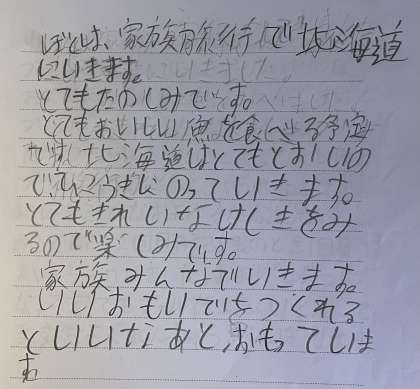 ぼくは、家族旅行で北海道
にいきます。
とてもたのしみです。
とてもおいしい魚を食べる予定
です。北海道はとてもとおいの
でひこうきにのっていきます。
とてもきれいなけしきをみ
るので楽しみです。
家族みんなでいきます。
いいおもいでをつくれる
といいなあと、おもっていま
す